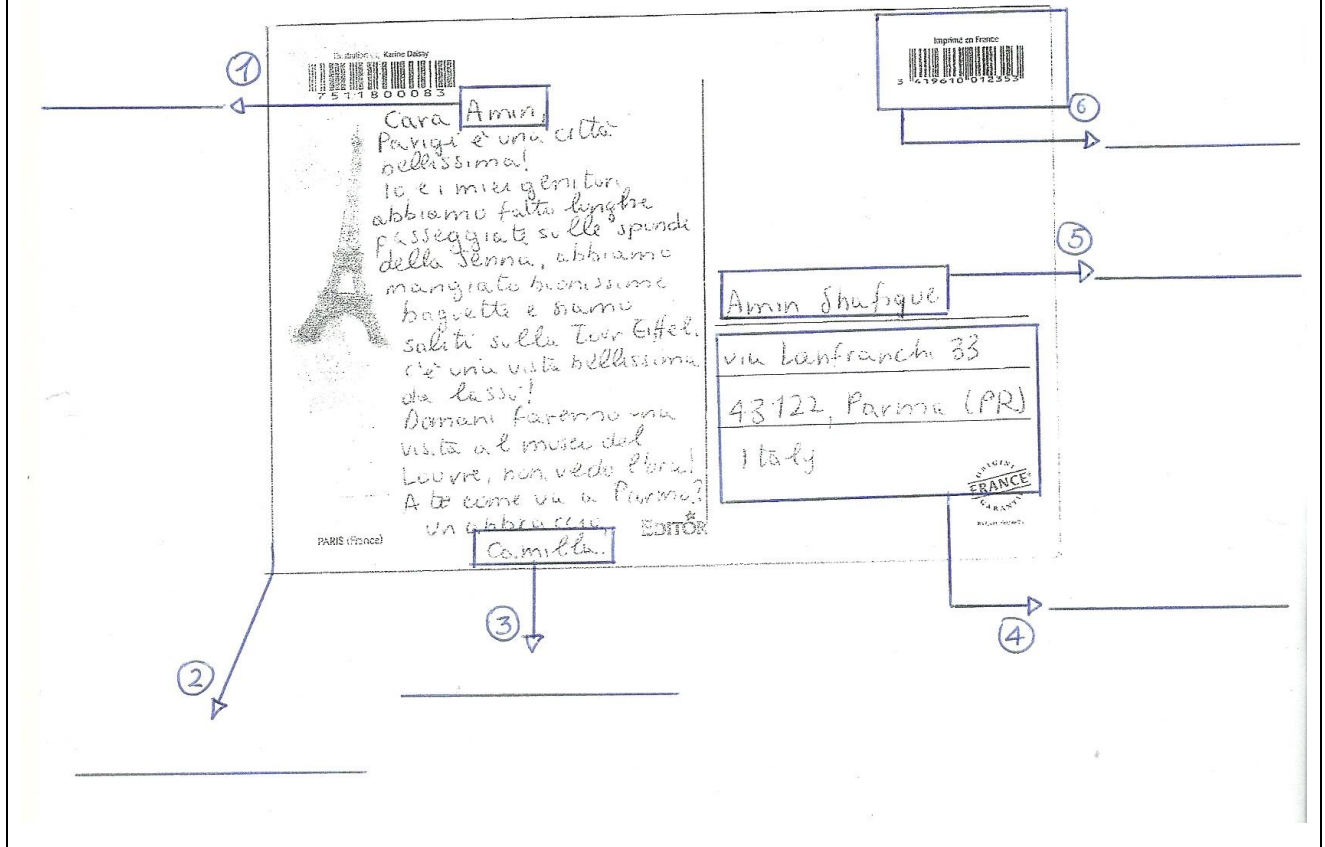 Illustration : Karine Daisay
7511800083
Cara Amin,
Parigi è una città
bellissima!
Io e i miei genitori
abbiamo fatto lunghe
passeggiate sulle sponde
della Senna, abbiamo
mangiato buonissime
baguette e siamo
saliti sulla Tour Eiffel.
C'è una vista bellissima
da lassù!
Domani faremo una
visita al museo del
Louvre, non vedo l'ora!
A te come va a Parma?
Un abbraccio,
Camilla
PARIS (France)
EDITOR
Imprimé en France
3 419610 012353
Amin Shafique
via Lanfranchi 33
43122, Parma (PR)
Italy
ORIGINE
FRANCE
GARANTIE
1
2
3
4
5
6